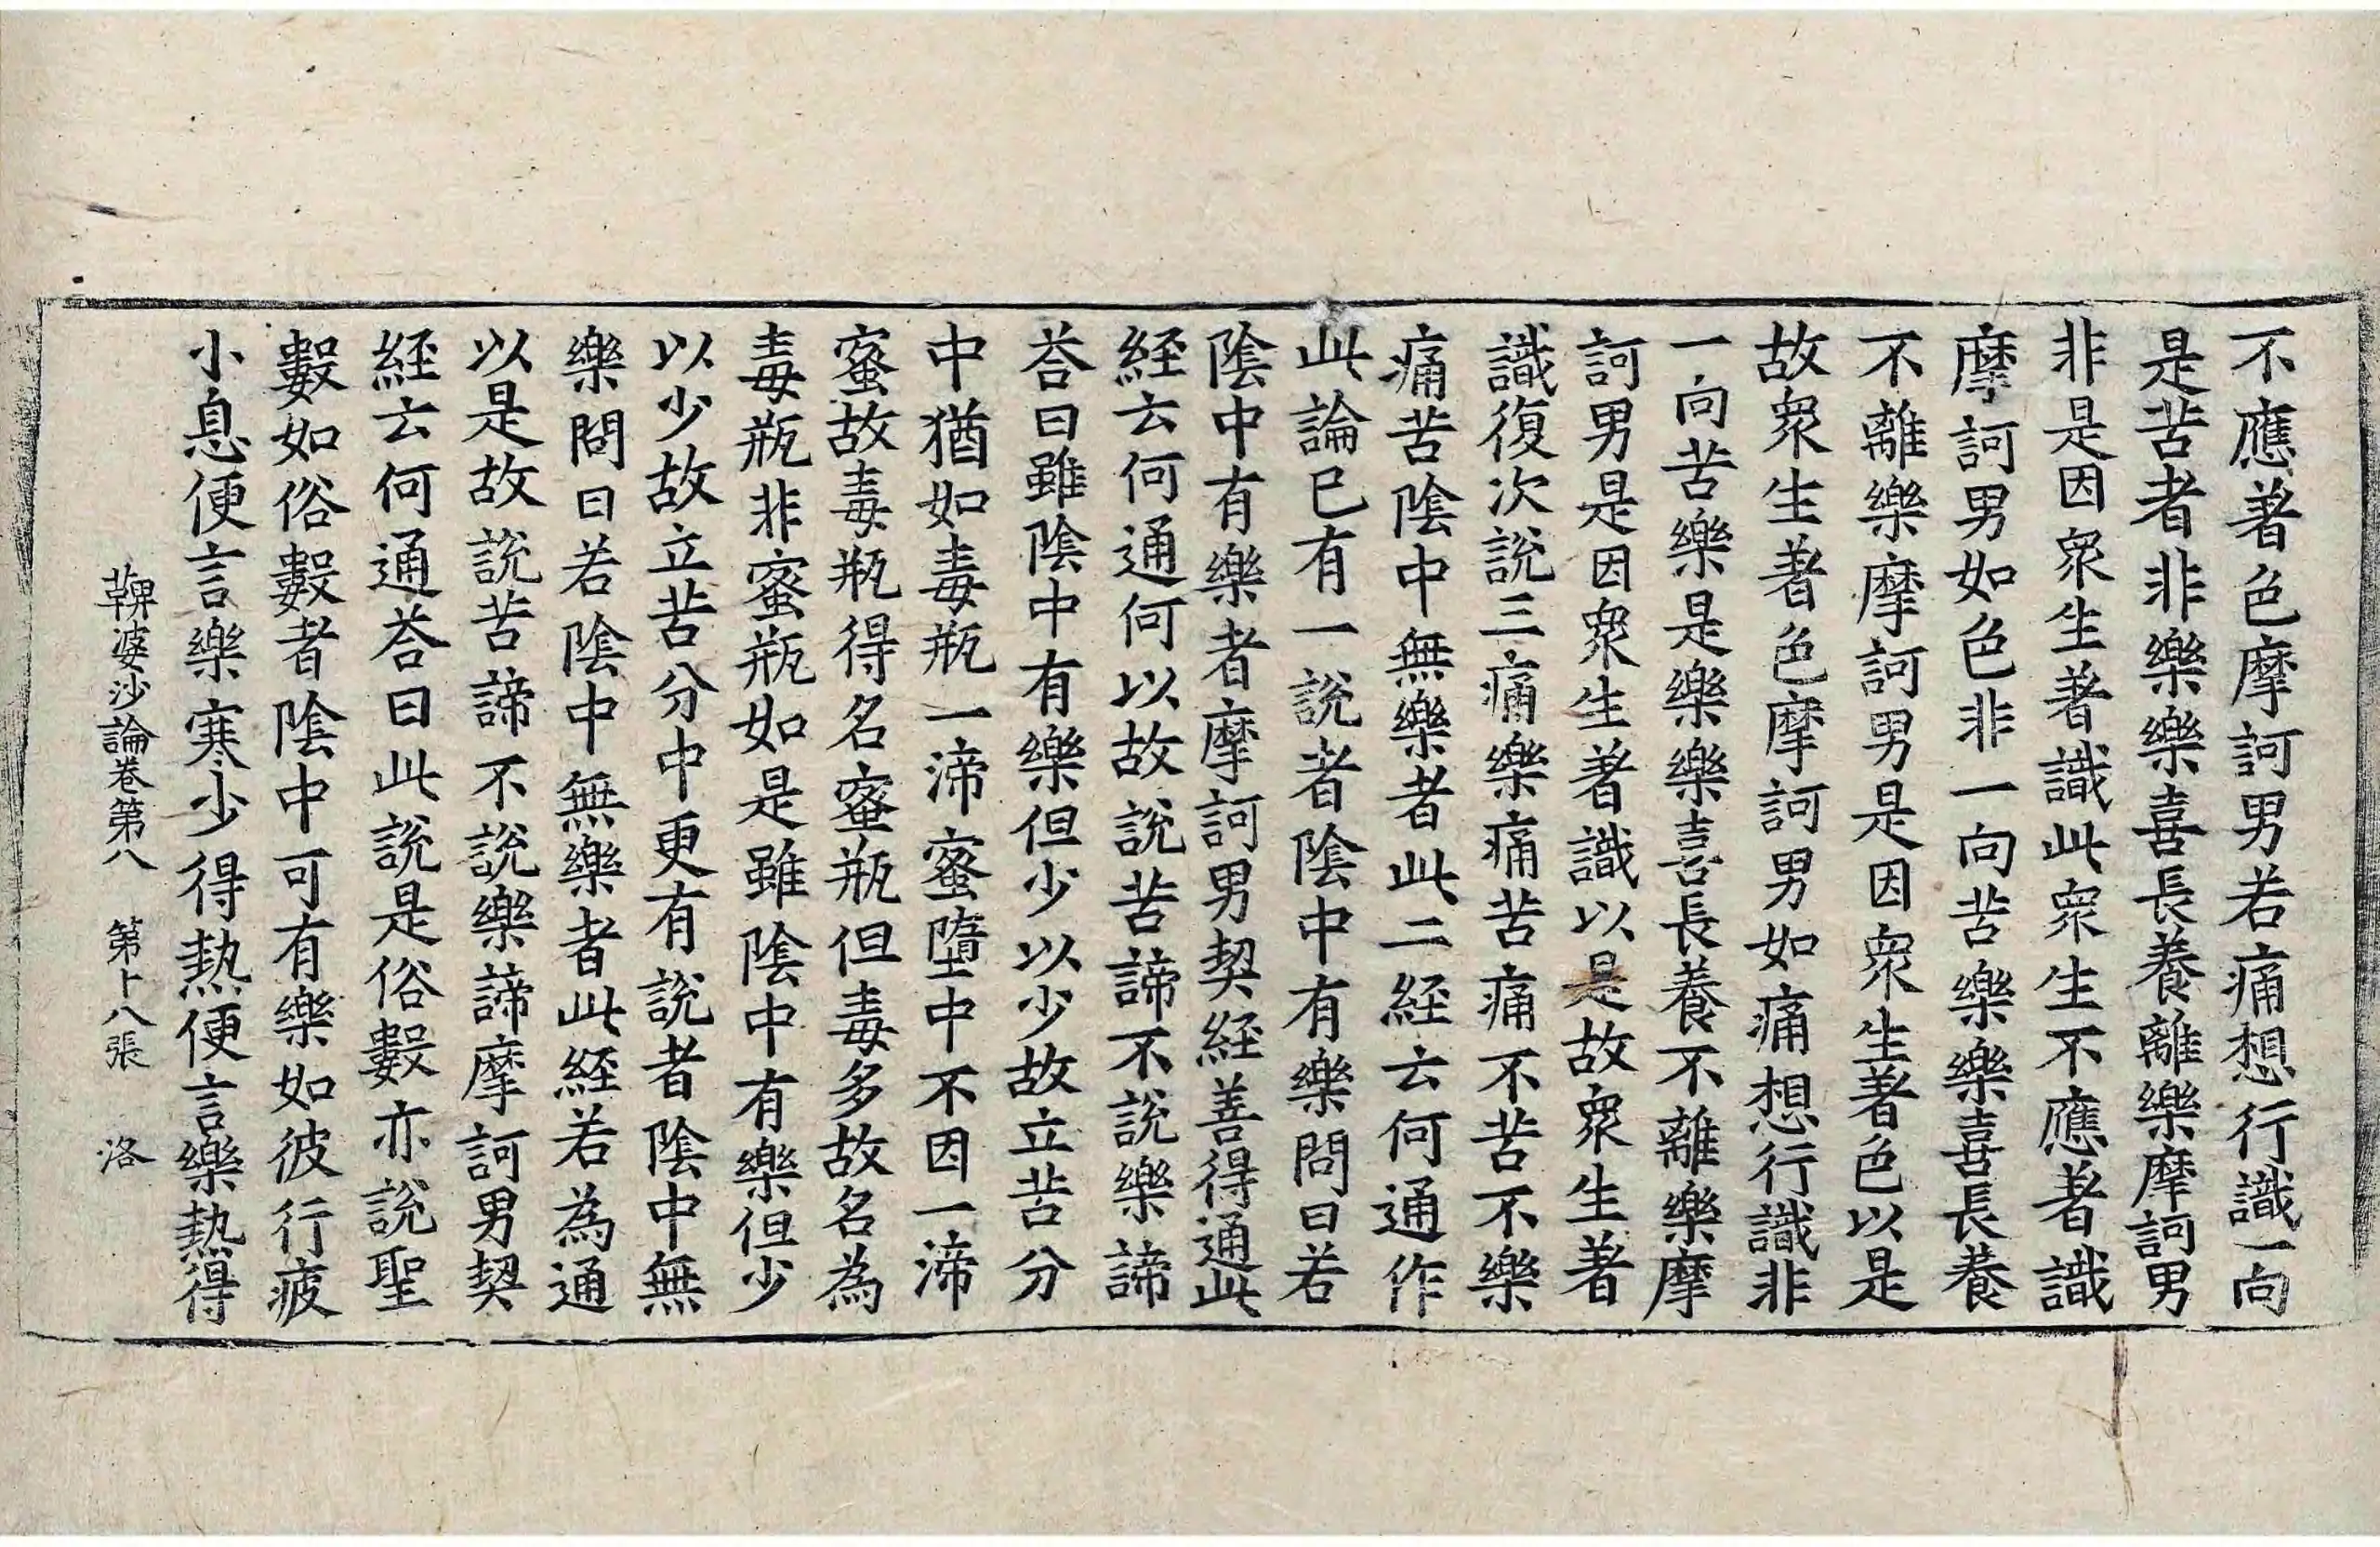 不應著色摩訶男若痛想行識一向
是苦者非樂樂喜長養離樂摩訶男
非是因衆生著識此衆生不應著識
摩訶男如色非一向苦樂樂喜長養
不離樂摩訶男是因衆生著色以是
故衆生著色摩訶男如痛想行識非
一向苦樂是樂樂喜長養不離樂摩
訶男是因衆生著識以是故衆生著
識復次說三痛樂痛苦痛不苦不樂
痛苦陰中無樂者此二経云何通作
此論已有一說者陰中有樂問曰若
陰中有樂者摩訶男契経善得通此
経云何通何以故說苦諦不說樂諦
荅曰雖陰中有樂但少以少故立苦分
中猶如毒瓶一渧蜜墮中不因一渧
蜜故毒瓶得名蜜瓶但毒多故名為
毒瓶非蜜瓶如是雖陰中有樂但少
以少故立苦分中更有說者陰中無
樂問曰若陰中無樂者此経若為通
以是故說苦諦不說樂諦摩訶男契
経云何通荅曰此說是俗數亦說聖
數如俗數者陰中可有樂如彼行疲
小息便言樂寒少得熱便言樂熱得
鞞婆沙論卷第八　第十八張　洛